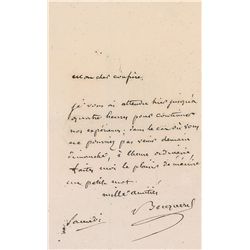 Mon cher confrère,
je vous ai attendu hier jusqu'à
quatre heures pour continuer
nos expériences; dans le cas où vous
ne pourriez pas venir demain
dimanche, à l'heure ordinaire
faites moi le plaisir de m'écrire
un petit mot.
mille amitiés
Becquerel
Samedi